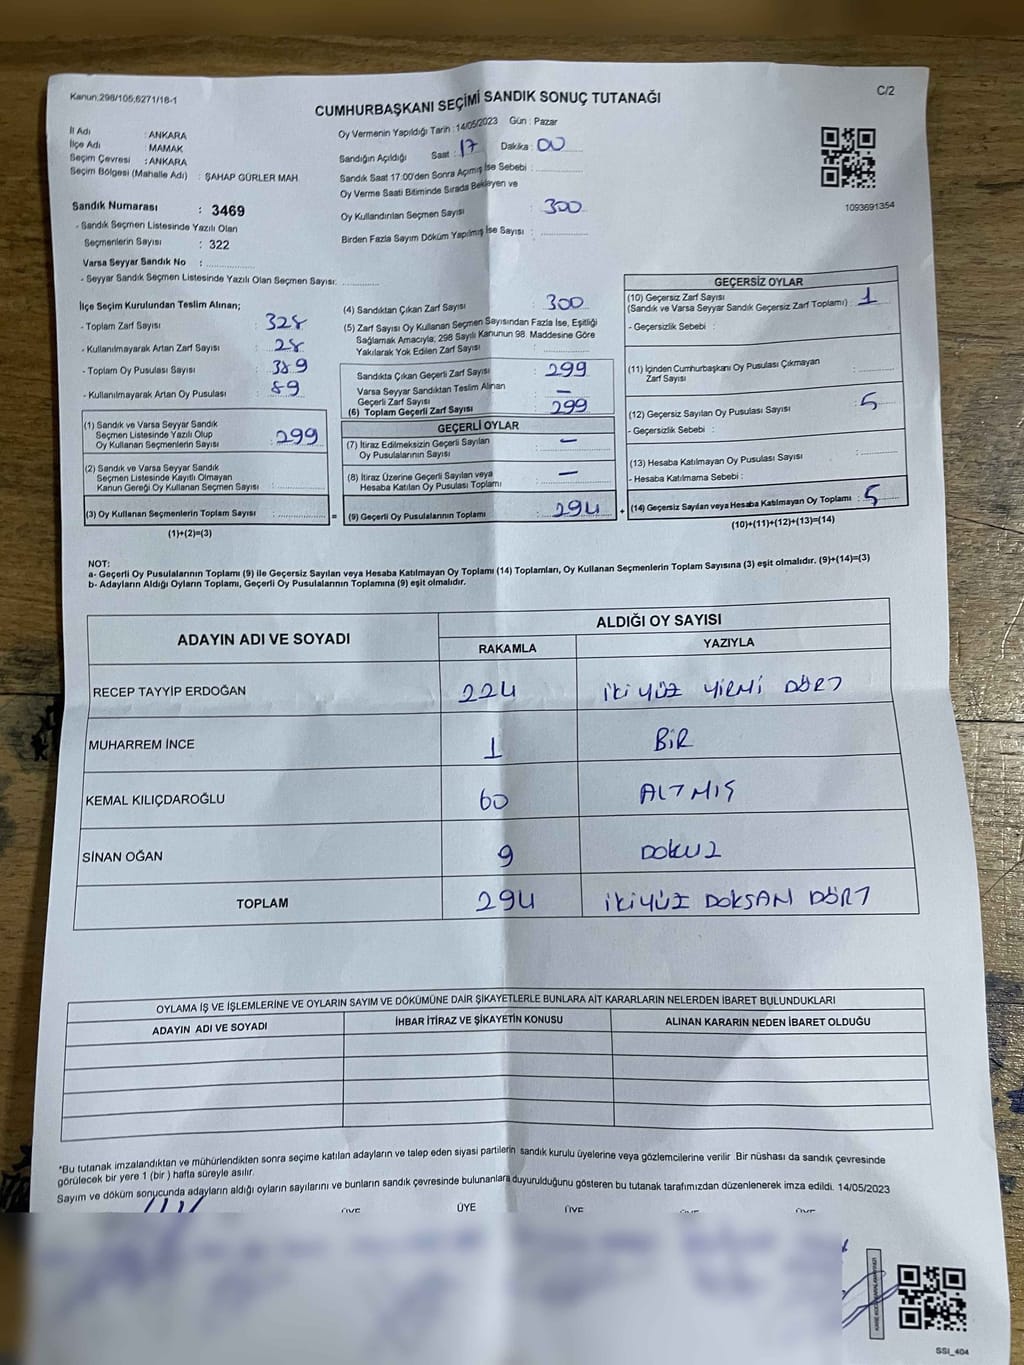 Kanun:298/105,6271/18-1
C/2
CUMHURBAŞKANI SEÇİMİ SANDIK SONUÇ TUTANAĞI
İl Adı : ANKARA
İlçe Adı : MAMAK
Seçim Çevresi : ANKARA
Seçim Bölgesi (Mahalle Adı) : ŞAHAP GÜRLER MAH.
Sandık Numarası : 3469
- Sandık Seçmen Listesinde Yazılı Olan
Seçmenlerin Sayısı : 322
Varsa Seyyar Sandık No :
- Seyyar Sandık Seçmen Listesinde Yazılı Olan Seçmen Sayısı:
Oy Vermenin Yapıldığı Tarih : 14/05/2023 Gün : Pazar
Sandığın Açıldığı Saat : 17 Dakika : 00
Sandık Saat 17:00'den Sonra Açımış İse Sebebi :
Oy Verme Saati Bitiminde Sırada Bekleyen ve
Oy Kullandırılan Seçmen Sayısı : 300
Birden Fazla Sayım Döküm Yapılmış İse Sayısı :
1093691354
İlçe Seçim Kurulundan Teslim Alınan;
- Toplam Zarf Sayısı : 328
- Kullanılmayarak Artan Zarf Sayısı : 28
- Toplam Oy Pusulası Sayısı : 389
- Kullanılmayarak Artan Oy Pusulası : 89
(1) Sandık ve Varsa Seyyar Sandık
Seçmen Listesinde Yazılı Olup
Oy Kullanan Seçmenlerin Sayısı : 299
(2) Sandık ve Varsa Seyyar Sandık
Seçmen Listesinde Kayıtlı Olmayan
Kanun Gereği Oy Kullanan Seçmen Sayısı :
(3) Oy Kullanan Seçmenlerin Toplam Sayısı :
(1)+(2)=(3)
=
(4) Sandıktan Çıkan Zarf Sayısı : 300
(5) Zarf Sayısı Oy Kullanan Seçmen Sayısından Fazla İse, Eşitliği
Sağlamak Amacıyla; 298 Sayılı Kanunun 98. Maddesine Göre
Yakılarak Yok Edilen Zarf Sayısı :
Sandıkta Çıkan Geçerli Zarf Sayısı : 299
Varsa Seyyar Sandıktan Teslim Alınan
Geçerli Zarf Sayısı : —
(6) Toplam Geçerli Zarf Sayısı : 299
GEÇERLİ OYLAR
(7) İtiraz Edilmeksizin Geçerli Sayılan
Oy Pusulalarının Sayısı : —
(8) İtiraz Üzerine Geçerli Sayılan veya
Hesaba Katılan Oy Pusulası Toplamı : —
(9) Geçerli Oy Pusulalarının Toplamı : 294
+
GEÇERSİZ OYLAR
(10) Geçersiz Zarf Sayısı
(Sandık ve Varsa Seyyar Sandık Geçersiz Zarf Toplamı) : 1
- Geçersizlik Sebebi :
(11) İçinden Cumhurbaşkanı Oy Pusulası Çıkmayan
Zarf Sayısı :
(12) Geçersiz Sayılan Oy Pusulası Sayısı : 5
- Geçersizlik Sebebi :
(13) Hesaba Katılmayan Oy Pusulası Sayısı :
- Hesaba Katılmama Sebebi :
(14) Geçersiz Sayılan veya Hesaba Katılmayan Oy Toplamı : 5
(10)+(11)+(12)+(13)=(14)
NOT:
a- Geçerli Oy Pusulalarının Toplamı (9) ile Geçersiz Sayılan veya Hesaba Katılmayan Oy Toplamı (14) Toplamları, Oy Kullanan Seçmenlerin Toplam Sayısına (3) eşit olmalıdır. (9)+(14)=(3)
b- Adayların Aldığı Oyların Toplamı, Geçerli Oy Pusulalarının Toplamına (9) eşit olmalıdır.
ADAYIN ADI VE SOYADI
ALDIĞI OY SAYISI
RAKAMLA YAZIYLA
RECEP TAYYİP ERDOĞAN 224 İKİYÜZ YİRMİ DÖRT
MUHARREM İNCE 1 BİR
KEMAL KILIÇDAROĞLU 60 ALTMIŞ
SİNAN OĞAN 9 DOKUZ
TOPLAM 294 İKİYÜZ DOKSAN DÖRT
OYLAMA İŞ VE İŞLEMLERİNE VE OYLARIN SAYIM VE DÖKÜMÜNE DAİR ŞİKAYETLERLE BUNLARA AİT KARARLARIN NELERDEN İBARET BULUNDUKLARI
ADAYIN ADI VE SOYADI İHBAR İTİRAZ VE ŞİKAYETİN KONUSU ALINAN KARARIN NEDEN İBARET OLDUĞU
*Bu tutanak imzalandıktan ve mühürlendikten sonra seçime katılan adayların ve talep eden siyasi partilerin sandık kurulu üyelerine veya gözlemcilerine verilir .Bir nüshası da sandık çevresinde
görülecek bir yere 1 (bir ) hafta süreyle asılır.
Sayım ve döküm sonucunda adayların aldığı oyların sayılarını ve bunların sandık çevresinde bulunanlara duyurulduğunu gösteren bu tutanak tarafımızdan düzenlenerek imza edildi. 14/05/2023
ÜYE ÜYE ÜYE
SSI_404